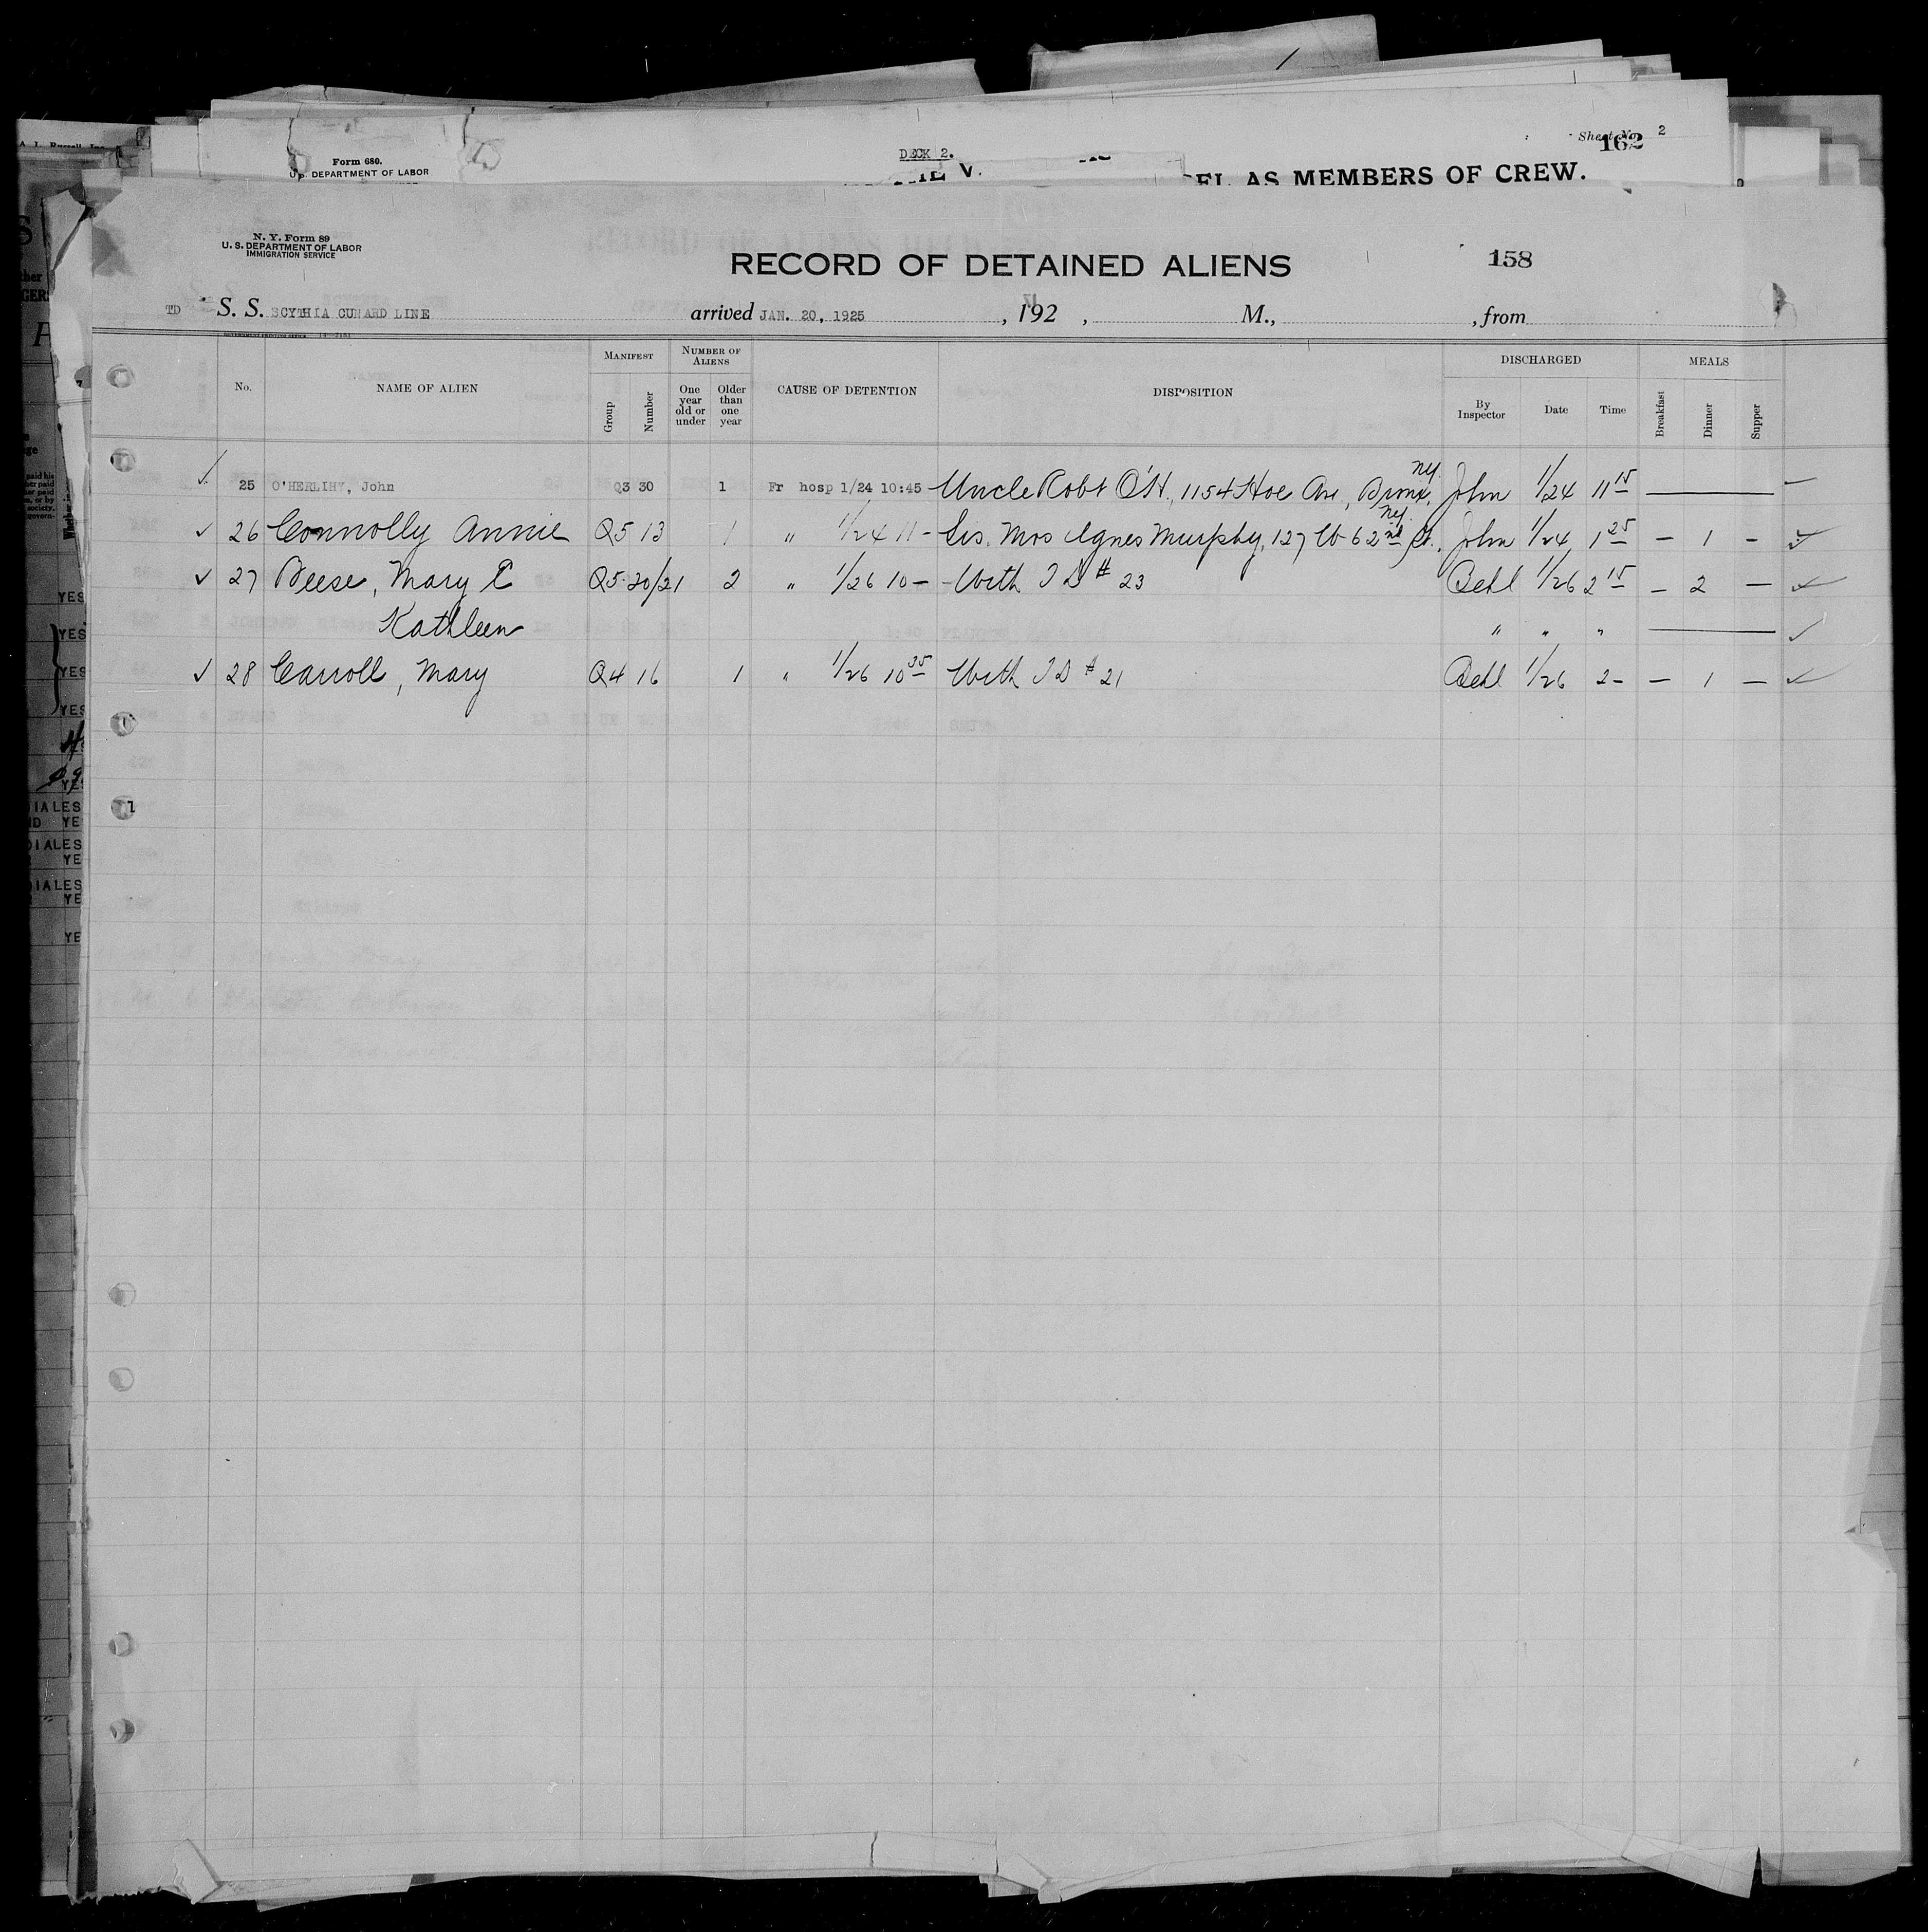 Form 680.
DEPARTMENT OF LABOR
DECK 2.
Sheet No. 2
162
AS MEMBERS OF CREW.
N. Y. Form 89
U. S. DEPARTMENT OF LABOR
IMMIGRATION SERVICE
RECORD OF DETAINED ALIENS
158
TD S. S. SCYTHIA CUNARD LINE arrived JAN. 20, 1925 , 192 , M., , from
No. NAME OF ALIEN MANIFEST Group Number NUMBER OF ALIENS One year old or under Older than one year CAUSE OF DETENTION DISPOSITION DISCHARGED By Inspector Date Time MEALS Breakfast Dinner Supper
✓ 25 O'HERLIHY, John Q3 30 1 Fr hosp 1/24 10:45 Uncle Robt O'H., 1154 Hoe Ave, Bronx, NY. John 1/24 11 15 —
✓ 26 Connolly Annie Q5 13 1 " 1/24 11 - Sis. Mrs Agnes Murphy, 127 W- 62nd St. NY. John 1/24 1 25 — 1 — ✓
✓ 27 Reese, Mary E Q5 20/21 2 " 1/26 10 — With T D # 23 Behl 1/26 2 15 — 2 — ✓
Kathleen " " " — ✓
✓ 28 Carroll, Mary Q4 16 1 " 1/26 10 35 With T D # 21 Behl 1/26 2 - — 1 — ✓